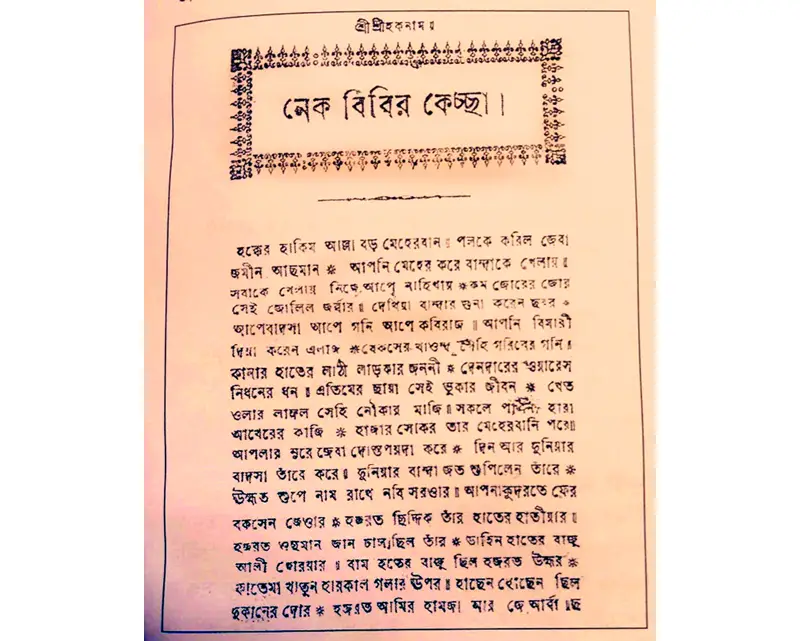 শ্রীশ্রীহকনাম॥
নেক বিবির কেচ্ছা।
হক্কের হাকিম আল্লা বড় মেহেরবান॥ পলকে করিল জেবা
জমীন আছমান * আপনি মেহের করে বান্দাকে খেলায়॥
সবাকে খেলায় নিজে আপে নাহি খায় * কম জোরের জোর
সেই জোলিল জব্বার॥ দেখিয়া বান্দার গুনা করেন ছবর *
আপে বাদসা আপে গনি আপে কবিরাজ॥ আপনি বিমারী
দিয়া করেন এলাজ * বেকসের খাওন্দ সেহি গরিবের গনি॥
কানার হাতের লাঠী লাড়কার জননী * দেনদারের ওয়ারেস
নিধনের ধন॥ এতিমের ছায়া সেই ভুকার জীবন * খেত
ওলার লাঙ্গল সেহি নৌকার মাজি॥ সকলে হারা
আখেরের কাজি * হাজার সোকর তার মেহেরবানি পরে॥
আপলার নুরে জেবা দোস্ত পয়দা করে * দিন আর দুনিয়ার
বাদসা তাঁরে করে॥ দুনিয়ার বান্দা জত শুপিলেন তাঁরে *
উম্মত শুপে নাম রাখে নবি সরওার॥ আপনা কুদরতে ফের
বকসেন জেওার * হজরত ছিদ্দিক তাঁর হাতের হাতীয়ার॥
হজরত ওছমান জান ছিল তাঁর * ডাহিন হাতের বাজু
আলী জোরয়ার॥ বাম হতের বাজু ছিল হজরত উম্মর *
ফাতেমা খাতুন হারকাল গলার উপর॥ হাছেন হোছেন ছিল
দুকানের দোর * হজরত আমির হামজা আর জে আর্বা